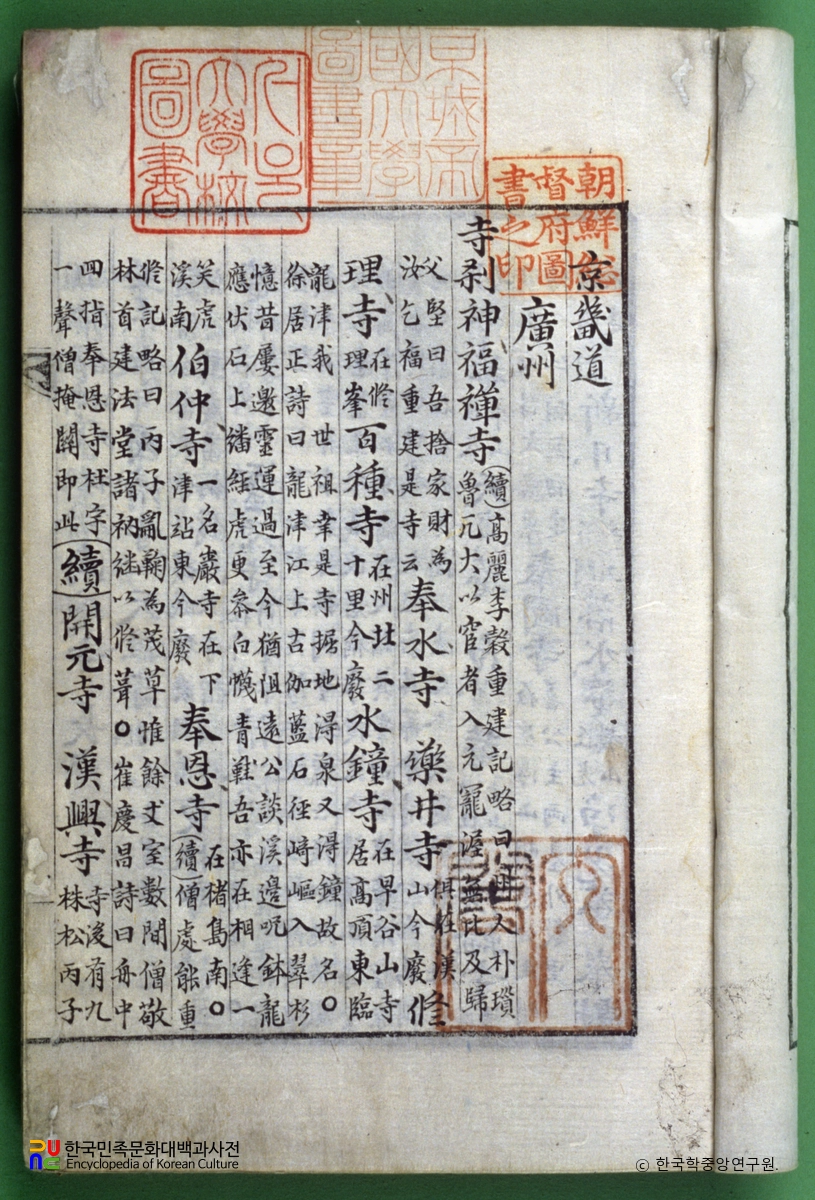 서울大學校圖書
京城帝國大學圖書章
朝鮮總督府圖書之印
京畿道
廣州
寺刹神福禪寺(續)高麗李穀重建記略曰州人朴瑣魯兀大以宦者入元寵渥無比及歸
父堅曰吾捨家財為汝乞福重建是寺云奉水寺 藥井寺俱在漢山今廢修
理寺在修理峯百種寺在州北二十里今廢水鐘寺在早谷山寺居高頂東臨
龍津我 世祖幸是寺掘地得泉又得鐘故名○徐居正詩曰龍津江上古伽藍石徑崎嶇入翠杉
憶昔屢邀靈運過至今猶阻遠公談溪邊呪鉢龍應伏石上繙經虎更參白襪青鞋吾亦在相逢一
笑虎溪南伯仲寺一名巖寺在下津站東今廢奉恩寺在楮島南○(續)僧處能重
修記略曰丙子亂鞠為茂草惟餘丈室數間僧敬林首建法堂諸衲継以修葺○崔慶昌詩曰舟中
四指奉恩寺杜宇一聲僧掩關即此(續)開元寺 漢興寺寺後有九株松丙子
한국민족문화대백과사전
Encyclopedia of Korean Culture
© 한국학중앙연구원.